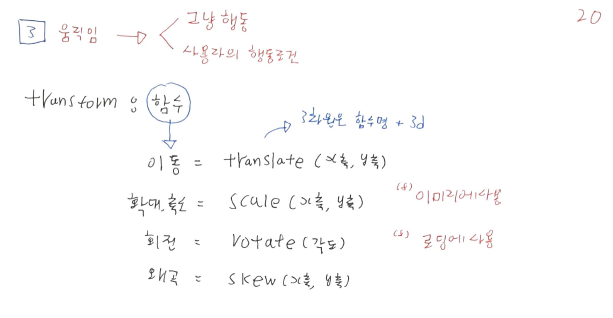 20
3 움직임 → 그냥 행동
사용자의 행동조건
transform : 함수
3차원은 함수명 + 3d
이동 = translate (x축, y축)
확대, 축소 = scale (x축, y축) 이미지에 사용
회전 = rotate (각도) 로딩에 사용
왜곡 = skew (x축, y축)